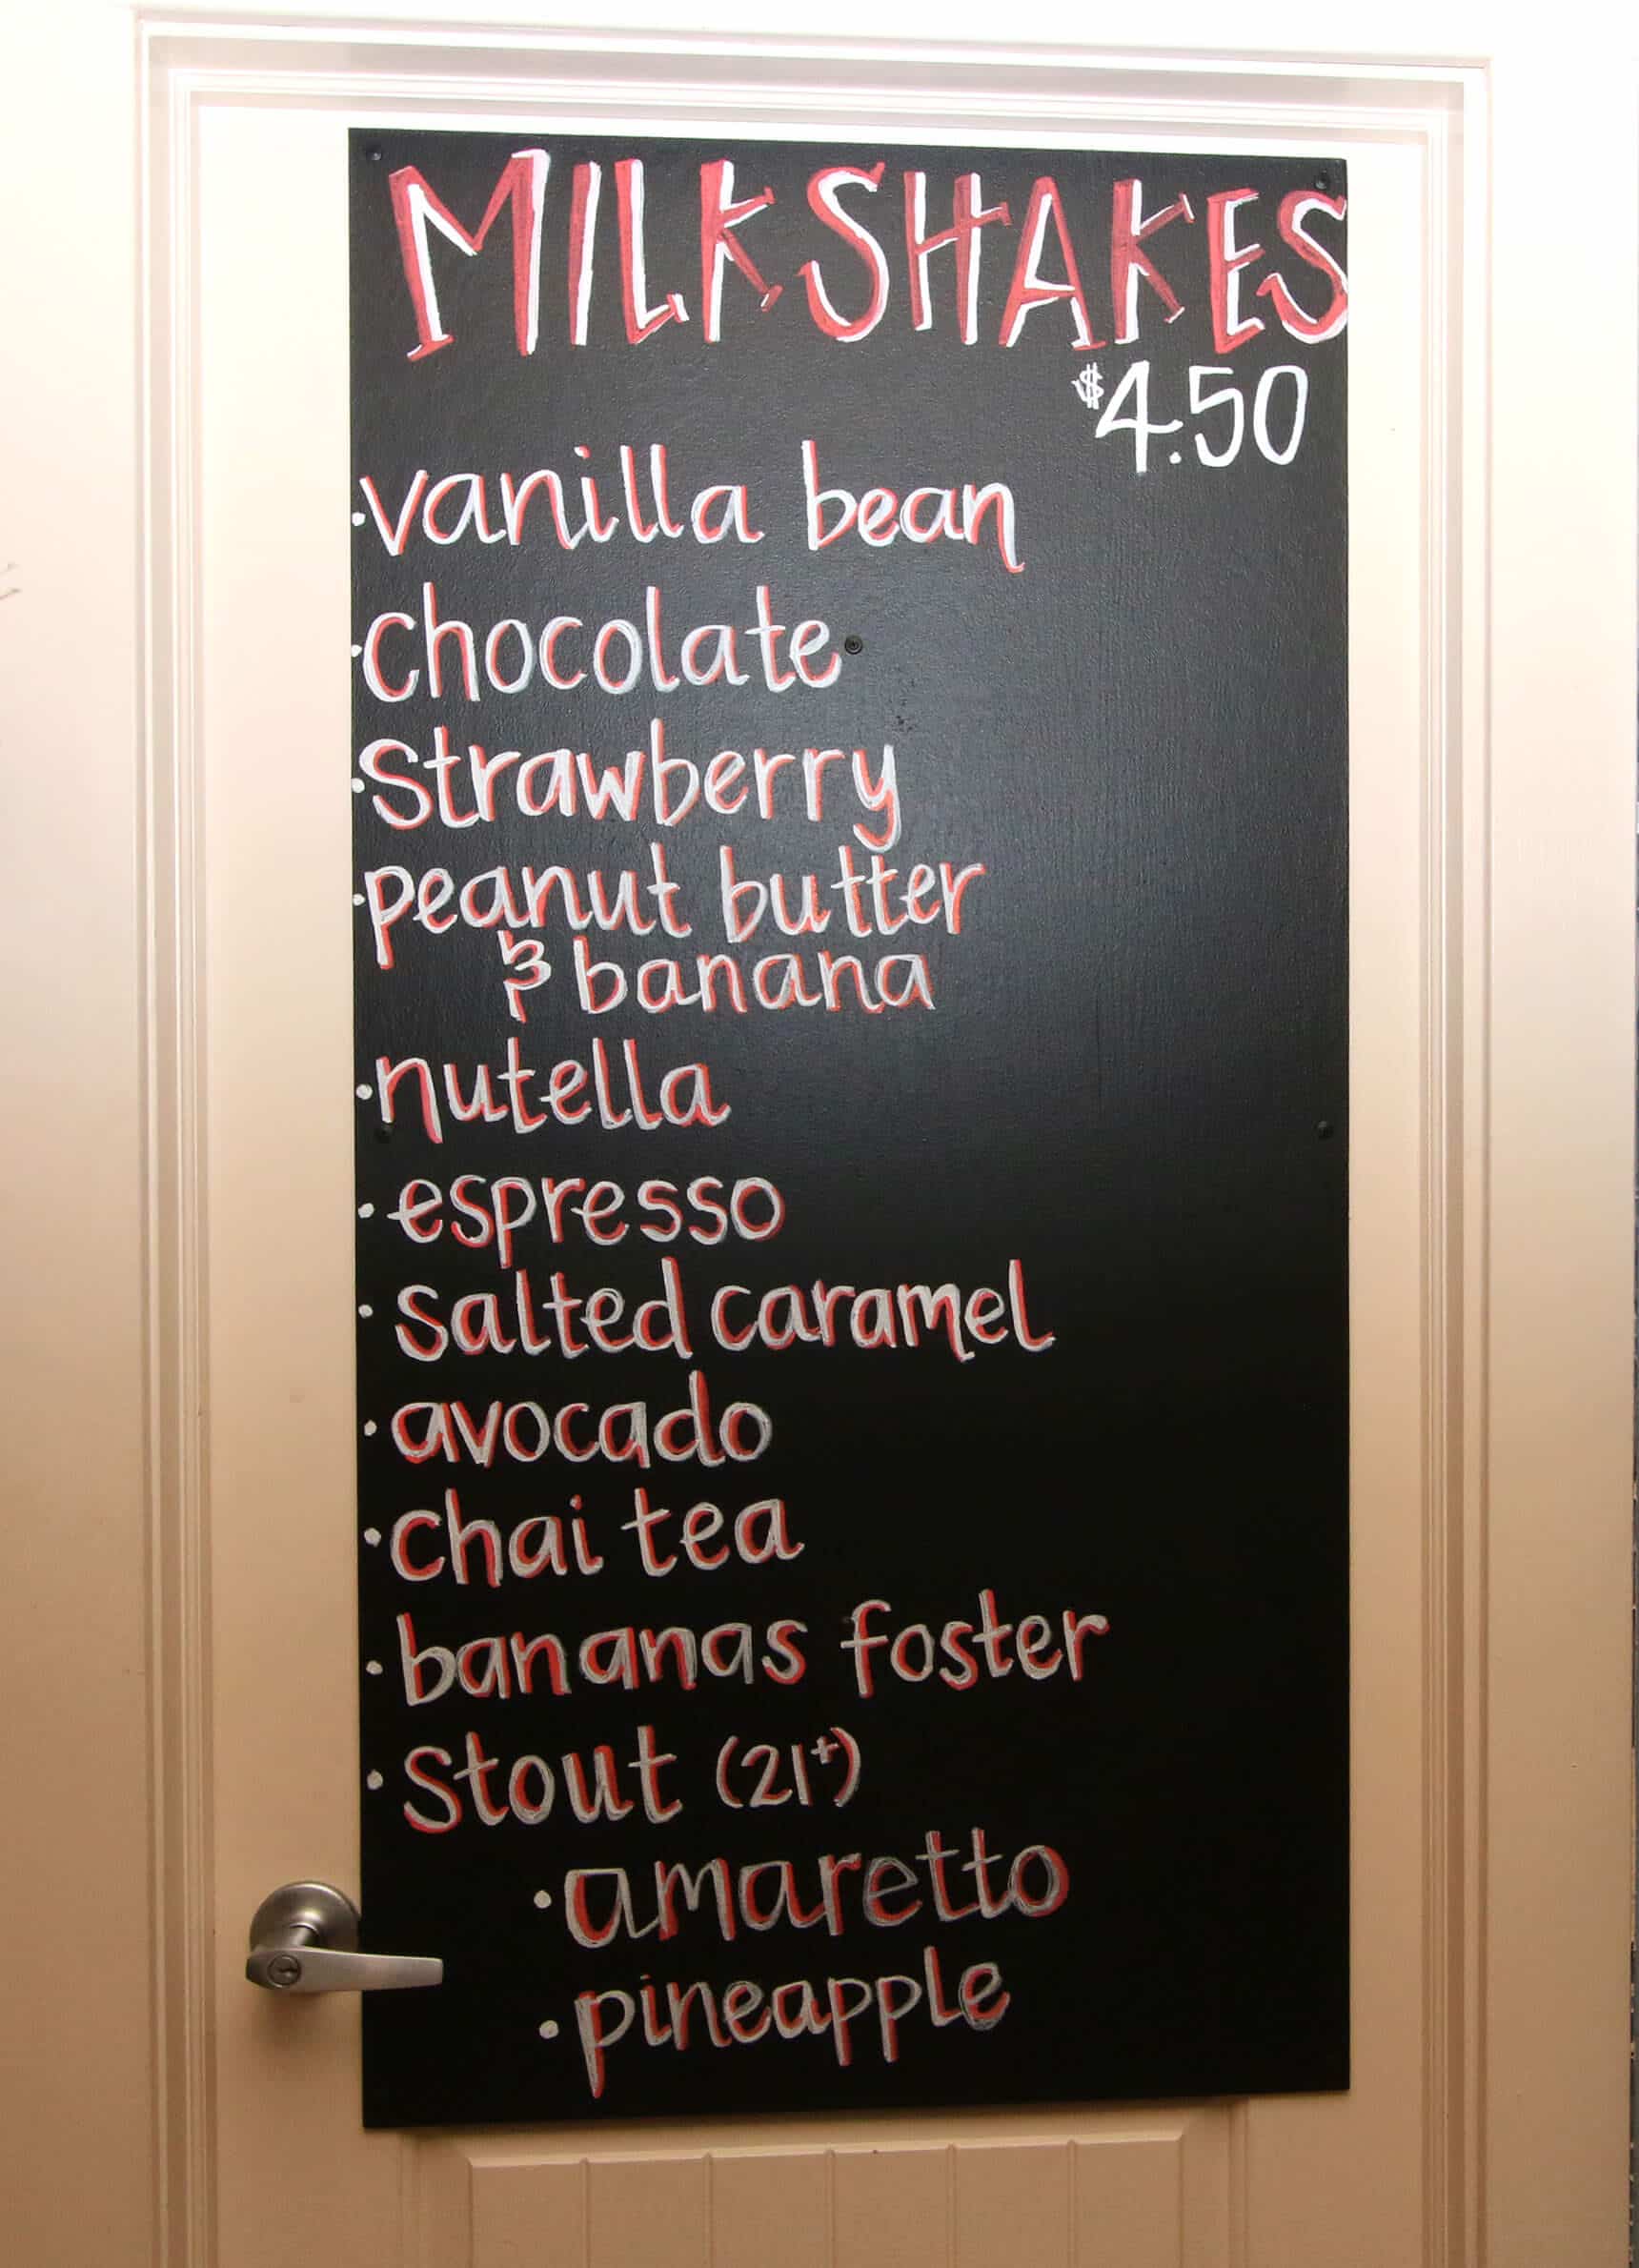 MILKSHAKES
$4.50
·vanilla bean
·chocolate
·strawberry
·peanut butter
& banana
·nutella
·espresso
·salted caramel
·avocado
·chai tea
·bananas foster
·stout (21+)
·amaretto
·pineapple